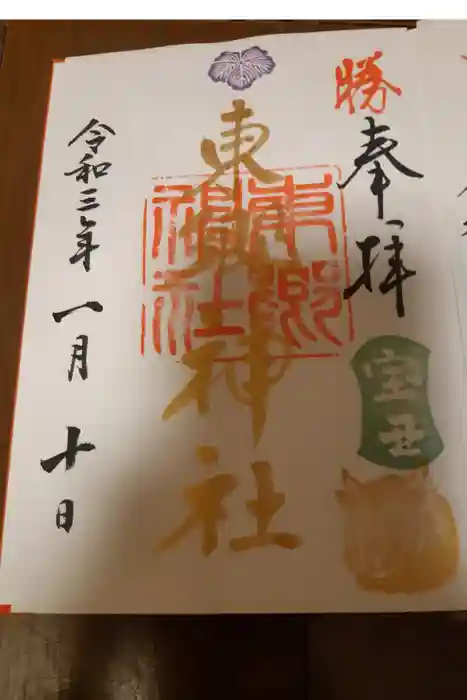 勝
奉拝
宝丑
東郷神社
東郷
神社
令和三年一月十日